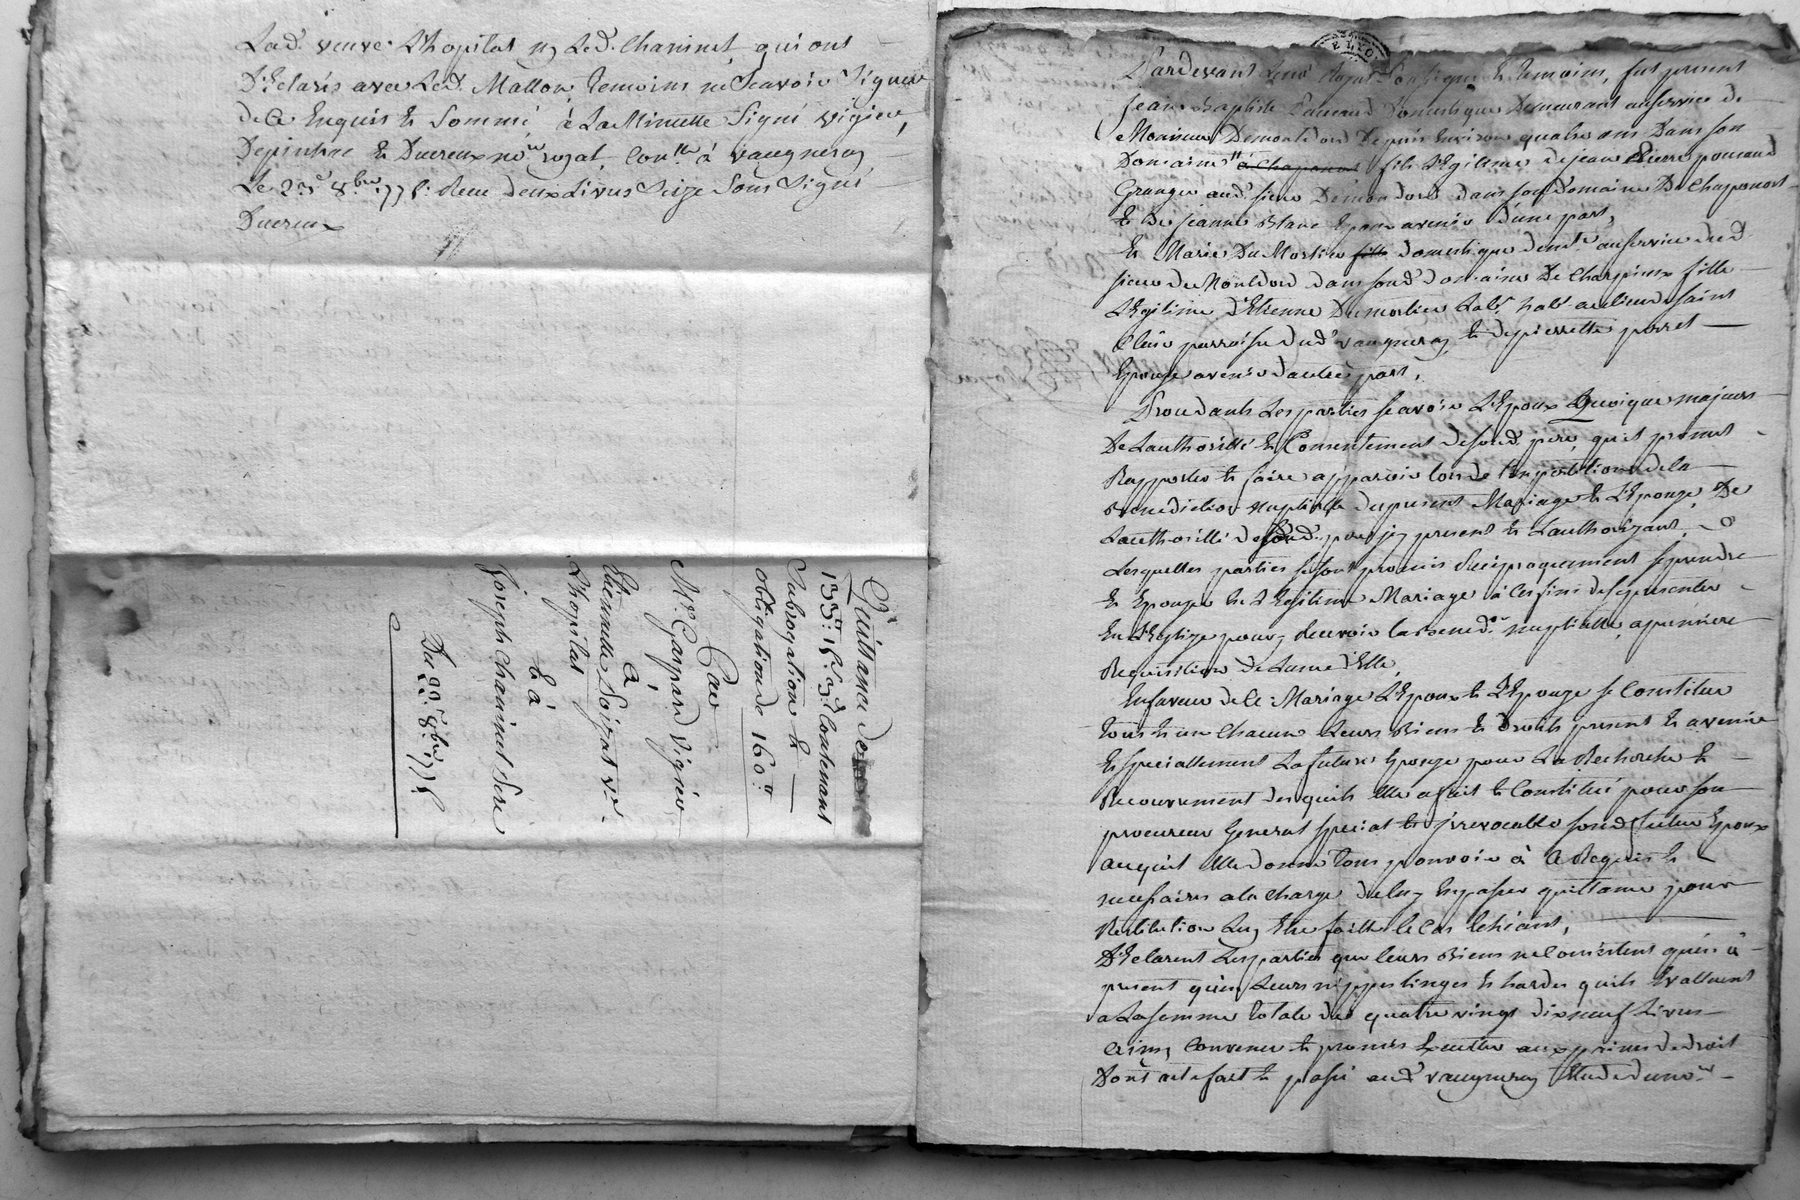 Lad. veuve Lhopital ny Led. Chaninet qui ont
Déclaré avec Led. Mallon temoins ne Scavoir Signer
de ce Enquis & Sommé, à La Minutte Signé Vigier,
Depinhac & Ducreux no.re royal Con.llé à Vaugneray
Le 2. 8.bre 77 Recu deux Livres Seize Sous Signé
Ducreux
Quittance de
133.tt 15.s 3.d Contenant
Subrogation &
obligation de 160.tt
Par
M.re Gaspard Vigier
à
Etiennette Soizat v.ve
Lhopital
& à
Joseph Chaninet Sere
Du 8.bre 77
E LYO
Pardevant Le no.re Royal Soussigné & temoins, fut present
Jean Baptiste Ponard Domestique Demeurant au service de
Monsieur Demontdord Depuis Environ quatre ans Dans son
Domaine à Chaponost fils Légitime de jean Pierre ponard
Granger aud. sieur Demondord dans son Domaine De Chaponost
& De jeanne Blanc Epoux avenir d'une part,
Et Marie Du Mortier fille domestique dem.te au service dud.
sieur de Montdord dans son d. domaine De Charpieux fille
Légitime d'Etienne Dumortier Lab.r hab.t au lieu de Saint
Clair parroisse dud. vaugneray, & de pierrette porret
Epouse avenir d'autre part,
Procedants Les parties scavoir L'Epoux Quoique majeur
De Lauthorité & Consentement de sond. pere, qu'il promet
Rapporter & faire apparoir lors de l'impartition de la
Benediction nuptialle du present Mariage & L'Epouse, De
Lauthorité de sond. pere icy present & Lauthorizant,
Lesquelles parties se sont promis Reciproquement se prendre
& Epouser en Légitime Mariage à Ces fins de se presenter
En L'Eglize pour y Recevoir la Bened.on nuptialle, a premiere
Requisition De Lune d'Elle,
En faveur de Ce Mariage L'Epoux & L'Epouse se Constitue
tous & un Chacun Leurs Biens & Droits present & avenir
& speciallement La future Epouse pour La Recherche &
Recouvrement desquels Elle a fait & Constitué pour son
procureur General special & irrevocable son d. futur Epoux
auquel Elle donne tous pouvoir à Ce Requis &
necessaires a la Charge de luy En passer quittance pour
Restitution Luy Etre faitte le Cas Echéant,
Déclarent Les parties que leurs Biens ne Consistent qu'a
present qu'en Leurs nippes linges & hardes qu'ils Evalluent
a La somme totale de quatre vingt dix neuf Livres
Ainsy Convenu & promis Executter aux peines de droit
Dont acte fait & passé aud. vaugneray Etude du no.re